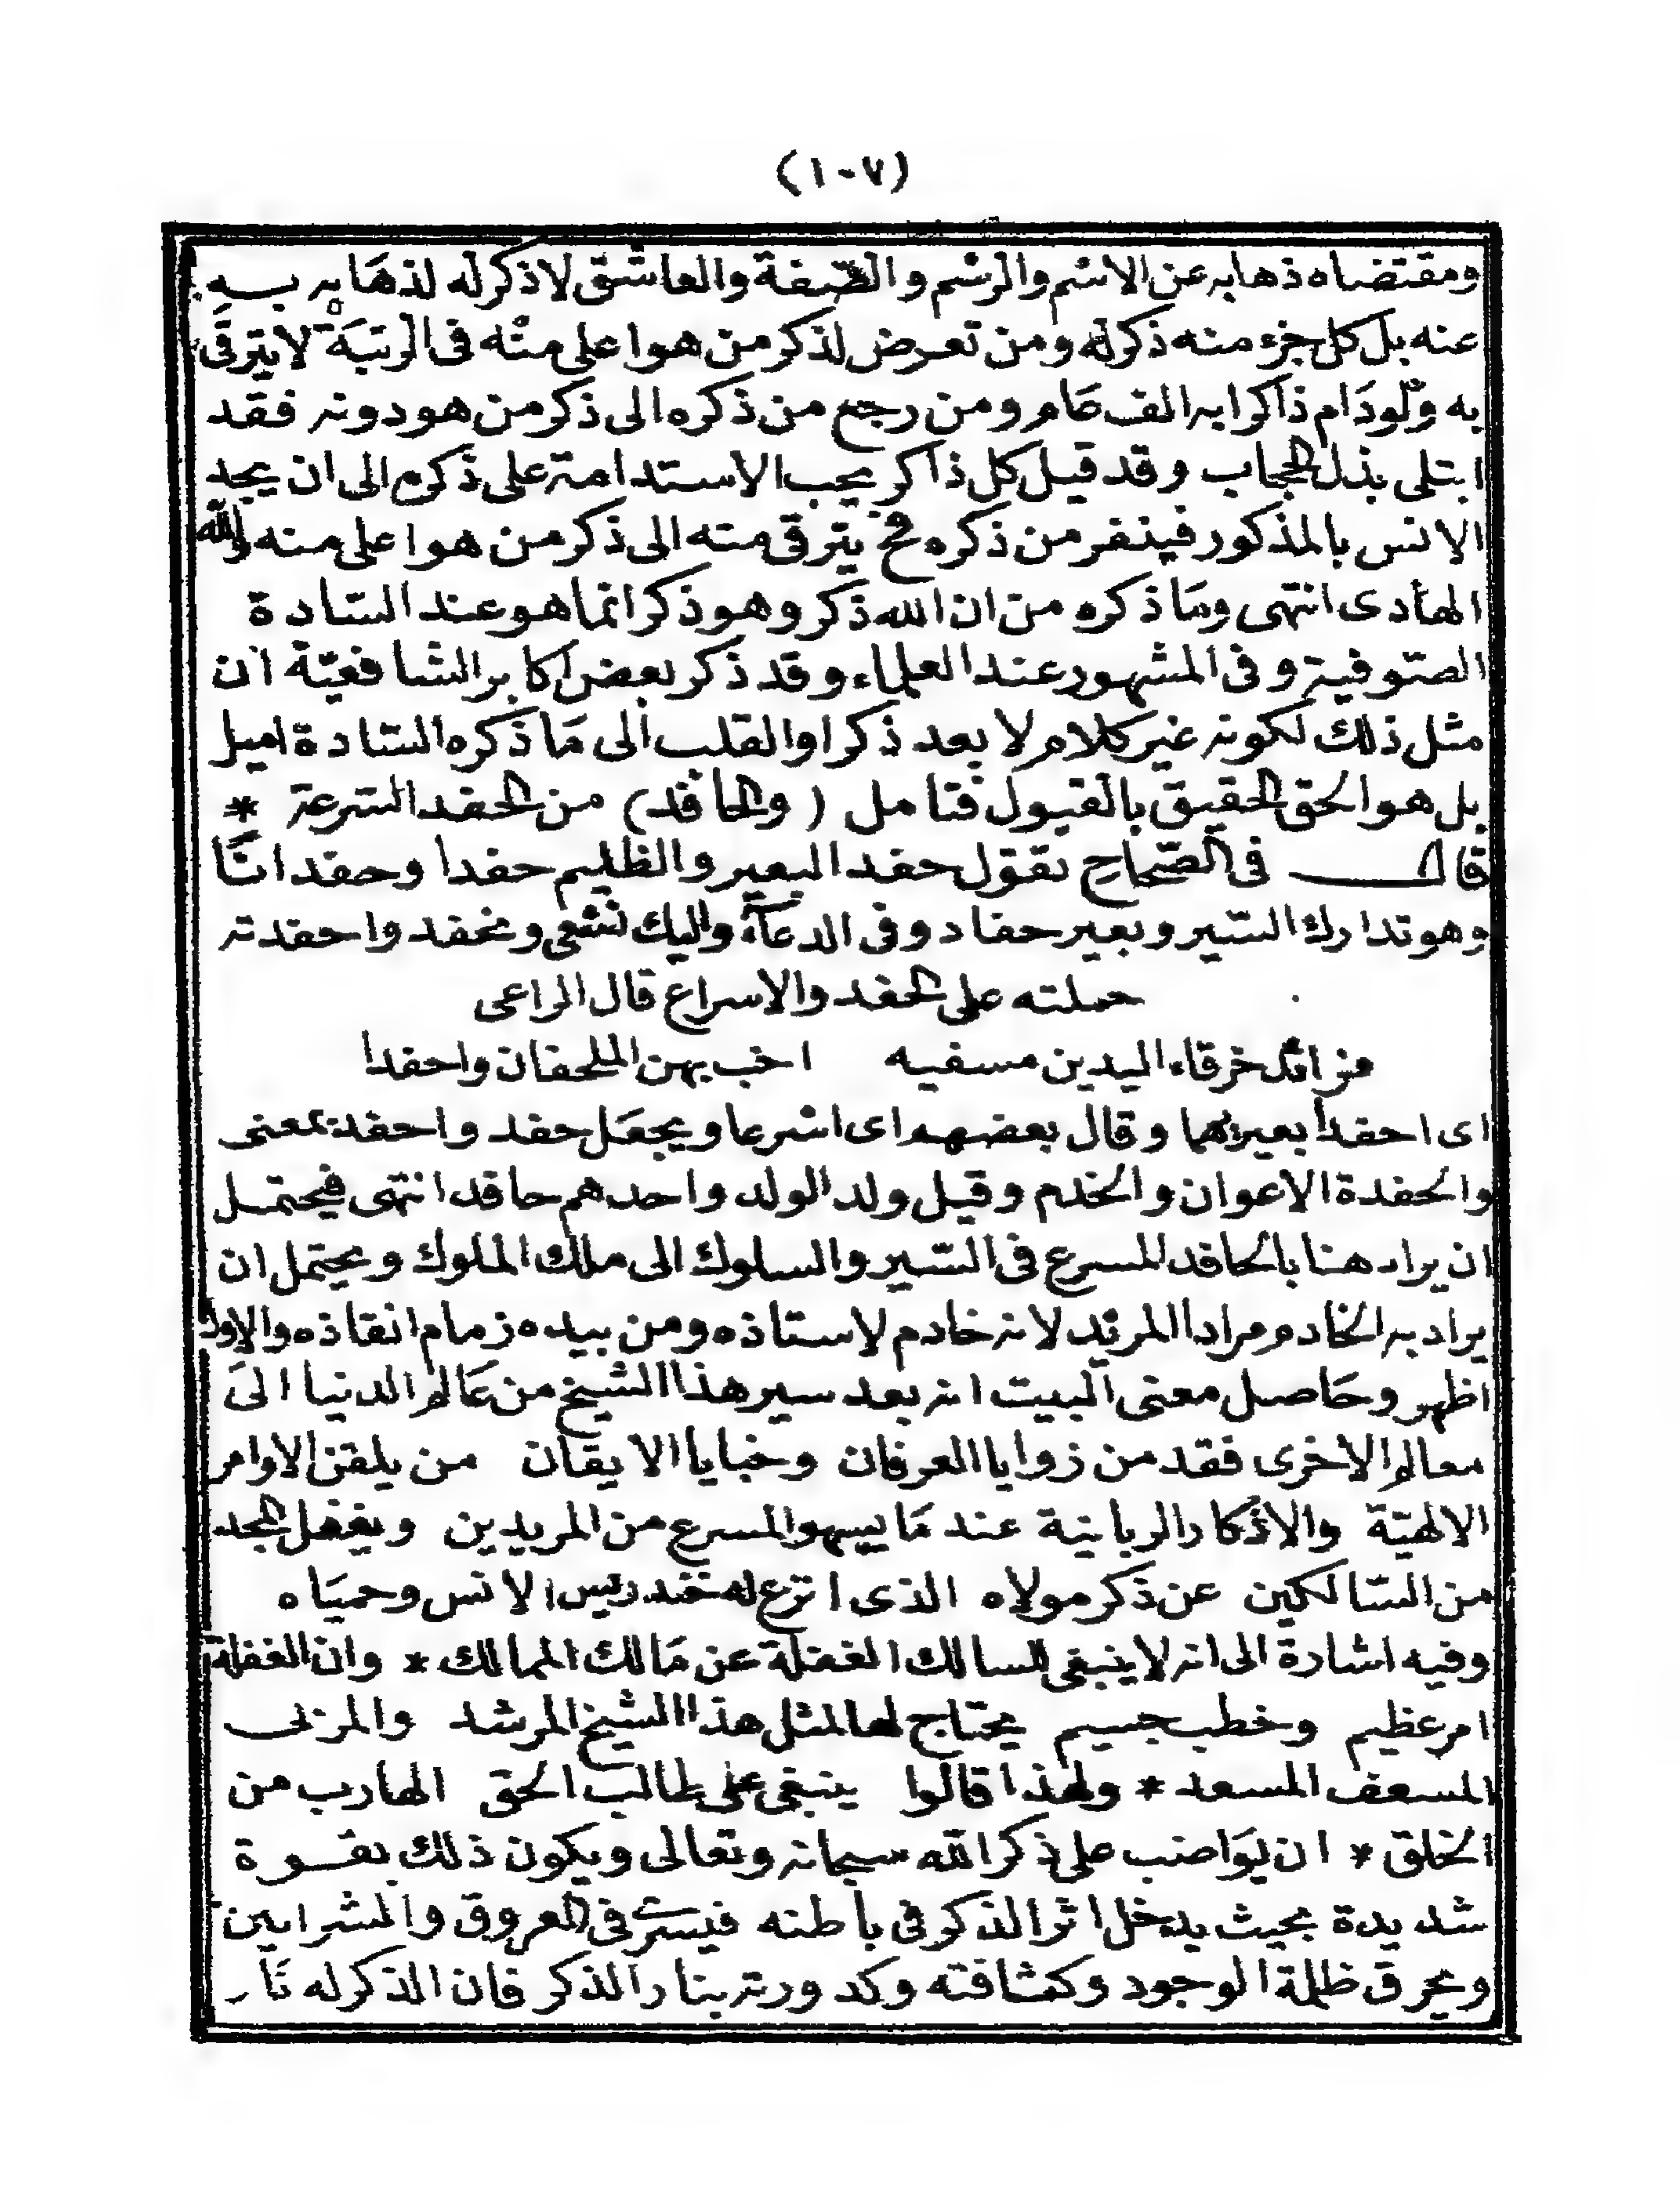 (١٠٧)
ومقتضاه ذهابه عن الاسم والرسم والصفة والعاشق لا ذكر له لذهابه به
عنه بل كل جزء منه ذكر له ومن تعرض لذكر من هو اعلى منه فى الرتبة لا يترقى
به ولو دام ذاكرا به الف عام ومن رجع من ذكره الى ذكر من هو دونه فقد
ابتلى بذل الحجاب وقد قيل كل ذاكر يجب الاستدامة على ذكره الى ان يجد
الانس بالمذكور فينفر من ذكره فح يترقى منه الى ذكر من هو اعلى منه والله
الهادى انتهى وما ذكره من ان الله ذكر وهو ذكر انما هو عند السادة
الصوفية وفى المشهور عند العلماء وقد ذكر بعض اكابر الشافعية ان
مثل ذلك لكونه غير كلام لا يعد ذكرا والقلب الى ما ذكره السادة اميل
بل هو الحق الحقيق بالقبول فتامل (والحافد) من الحفد السرعة *
قال فى الصحاح تقول حفد البعير والظليم حفدا وحفدانا
وهو تدارك السير وبعير حفاد وفى الدعاء واليك نسعى ونحفد واحفدته
حملته على الحفد والاسراع قال الراعى
مزائد خرقاء اليدين مسفيه اخب بهن الملحفان واحفدا
اى احفدا بعيريهما وقال بعضهم اى اسرعا ويجعل حفد واحفد بمعنى
والحفدة الاعوان والخدم وقيل ولد الولد واحدهم حافد انتهى فيحتمل
ان يراد هنا بالحافد المسرع فى السير والسلوك الى ملك الملوك ويحتمل ان
يراد به الخادم مرادا المريد لانه خادم لاستاذه ومن بيده زمام انقاذه والاول
اظهر وحاصل معنى البيت انه بعد سير هذا الشيخ من عالم الدنيا الى
معالم الاخرى فقد من زوايا العرفان وخبايا الايقان من يلقن الاوامر
الالهية والاذكار الربانية عند ما يسهو المسرع من المريدين ويغفل المجد
من السالكين عن ذكر مولاه الذى اترع له خندريس الانس وحمياه
وفيه اشارة الى انه لا ينبغى للسالك الغفلة عن مالك الممالك * وان الغفلة
امر عظيم وخطب جسيم يحتاج لها لمثل هذا الشيخ المرشد والمربى
المسعف المسعد * ولهذا قالوا ينبغى على طالب الحق الهارب من
الخلق * ان يواضب على ذكر الله سبحانه وتعالى ويكون ذلك بقوة
شديدة بحيث يدخل اثر الذكر فى باطنه فيسرى فى العروق والشرايين
ويحرق ظلمة الوجود وكثافته وكدورته بنار الذكر فان الذكر له نار